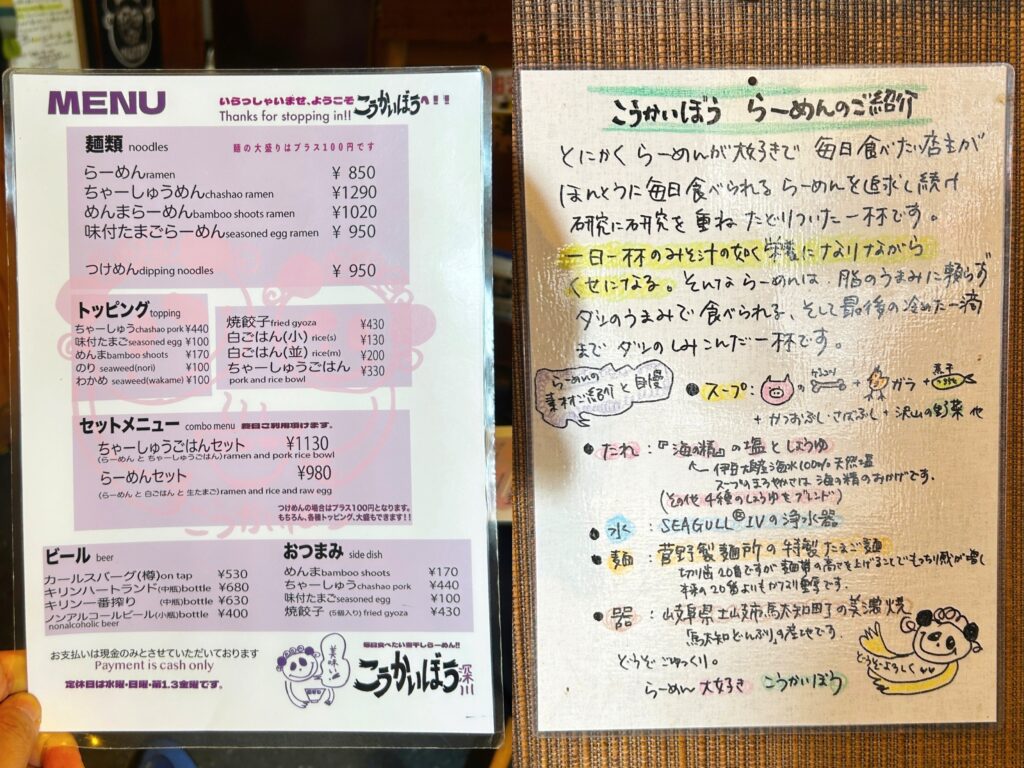 MENU
いらっしゃいませ、ようこそ こうかいぼうへ!!
Thanks for stopping in!!
麺類 noodles
麺の大盛りはプラス100円です
らーめんramen ¥ 850
ちゃーしゅうめんchashao ramen ¥1290
めんまらーめんbamboo shoots ramen ¥1020
味付たまごらーめんseasoned egg ramen ¥ 950
つけめんdipping noodles ¥ 950
トッピング topping
ちゃーしゅうchashao pork ¥440
味付たまごseasoned egg ¥100
めんまbamboo shoots ¥170
のり seaweed(nori) ¥100
わかめ seaweed(wakame) ¥100
焼餃子fried gyoza ¥430
白ごはん(小) rice(s) ¥130
白ごはん(並) rice(m) ¥200
ちゃーしゅうごはん ¥330
pork and rice bowl
セットメニュー combo menu 終日ご利用頂けます。
ちゃーしゅうごはんセット ¥1130
(らーめん と ちゃーしゅうごはん) ramen and pork rice bowl
らーめんセット ¥980
(らーめん と 白ごはん と 生たまご) ramen and rice and raw egg
つけめんの場合はプラス100円となります。
もちろん、各種トッピング、大盛もできます!!
ビール beer
カールスバーグ(樽)on tap ¥530
キリンハートランド(中瓶)bottle ¥680
キリン一番搾り (中瓶)bottle ¥630
ノンアルコールビール(小瓶)bottle ¥400
nonalcoholic beer
おつまみ side dish
めんまbamboo shoots ¥170
ちゃーしゅうchashao pork ¥440
味付たまごseasoned egg ¥100
焼餃子 (5個入り) fried gyoza ¥430
お支払いは現金のみとさせていただいております
Payment is cash only
定休日は水曜・日曜・第1.3金曜です。
美味い!!
毎日食べたい煮干しらーめん!!
こうかいぼう 深川
こうかいぼう らーめんのご紹介
とにかく らーめんが大好きで 毎日食べたい店主が
ほんとうに毎日食べられる らーめんを追求し続け
研究に研究を 重ね たどりついた一杯です。
一日一杯のみそ汁の如く栄養になりながら
くせになる。そんな らーめんは、脂のうまみに頼らず
ダシのうまみで食べられる、そして最後の冷めた一滴
まで ダシのしみこんだ一杯です。
らーめんの
素材ご紹介 と自慢
● スープ: の げんこつ + ガラ + 煮干
+ かつおぶし・さばぶし + 沢山の野菜 他
● たれ:『海の精』の塩としょうゆ
← 伊豆大島産海水100%天然塩
スープのまろやかさは 海の精のおかげです。
(その他 4種のしょうゆをブレンド)
● 水 : SEAGULL®IVの浄水器
● 麺 : 菅野製麺所の特製たまご麺
切り歯20番ですが 麺帯の高さを上げることでもっちり感が増し
本来の20番よりもかなり重厚です。
● 器 : 岐阜県土岐市駄知町の美濃焼
「駄知どんぶり」の産地です。
どうぞ ごゆっくり。
らーめん 大好き こうかいぼう
どうぞよろしく